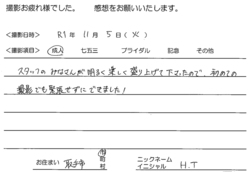 撮影お疲れ様でした。 感想をお願いいたします。
撮影日時 R1年 11月 5日(火)
撮影項目 成人 七五三 ブライダル 記念 その他
スタッフのみなさんが明るく楽しく盛り上げて下さったので、初めての
撮影でも緊張せずにできました!
お住まい 取手市 市 町 村 ニックネーム イニシャル H.T